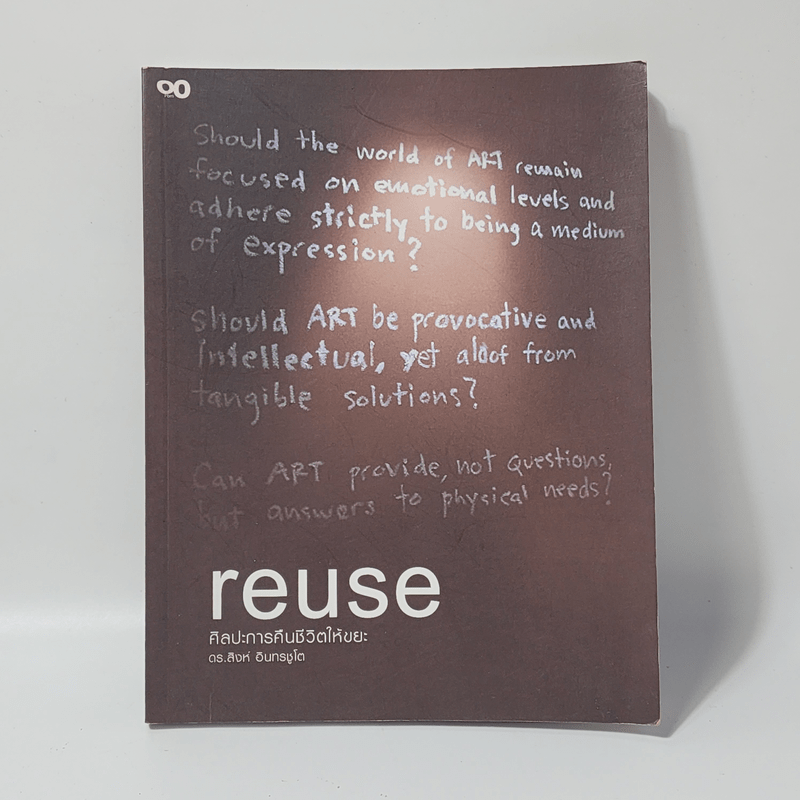 Should the world of ART remain
focused on emotional levels and
adhere strictly to being a medium
of expression?
Should ART be provocative and
Intellectual, yet aloof from
tangible solutions?
Can ART provide, not questions,
but answers to physical needs?
reuse
ศิลปะการคืนชีวิตให้ขยะ
ดร.สิงห์ อินทรชูโต